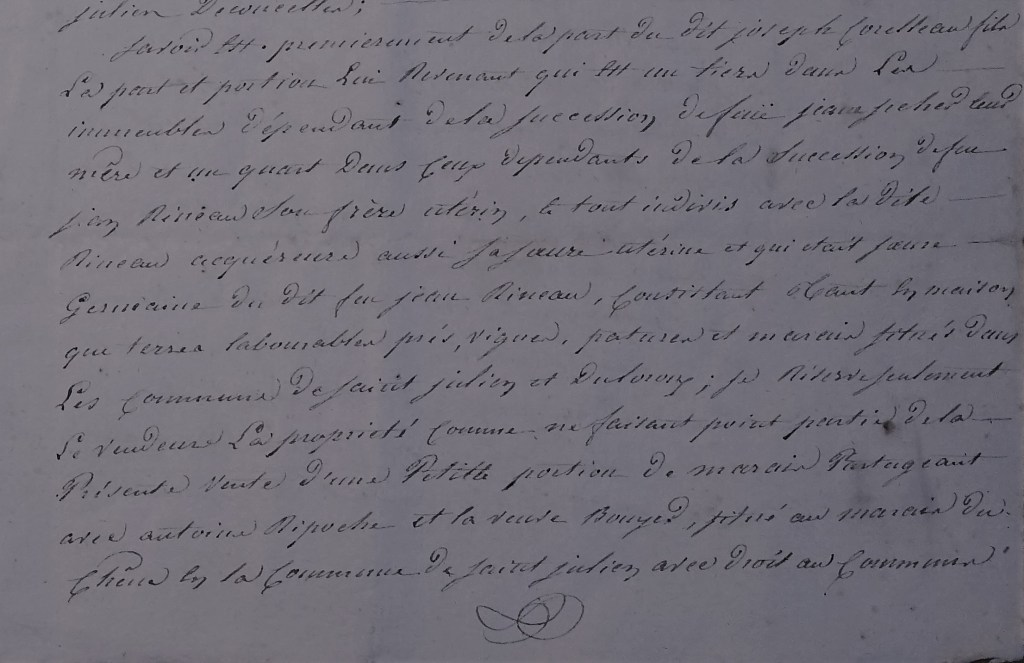 julien Deconcelles;
Savoir Est. premierement de la part du dit joseph Coresleau fils
La part et portion Lui Revenant qui Est un tiers dans Les
immeubles dépendant de la succession de feüe jeanne leur
mère et un quart Dans Ceux dependants de la Succession de feu
jean Rineau Son frère utérin, le tout indivis avec la dite
Rineau acquéreure aussi sa sœure utérine et qui était sœure
Germaine du dit feu jean Rineau, Consistant Etant En maison
que terres labourables prés, vignes, patures et marais situés dans
Les Commune de saint julien et Duloroux; se Réserve seulement
Le vendeure La propriété Comme ne faisant point partie de la
Présente vente d'une Petitte portion de marais Partageant
avec antoine Ripoche et la veuve Bouyer, situé au marais du
Chêne En la Commune de saint julien avec droit au Commune